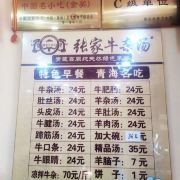 中国名小吃(金奖)
C级单位
张家牛杂汤
特色早餐 青海名吃
牛杂汤: 24元 牛肥肠: 24元
肚丝汤: 24元 牛杂汤: 24元
头皮汤: 24元 牛肚汤: 24元
牛腱汤: 24元 牛肉汤: 24元
蹄筋汤: 24元 加大碗: 36元
牛口条: 24元 精品汤: 35元
牛眼睛: 24元 羊脑子: 7元
凉拌牛杂: 70元/斤 饼子: 1元